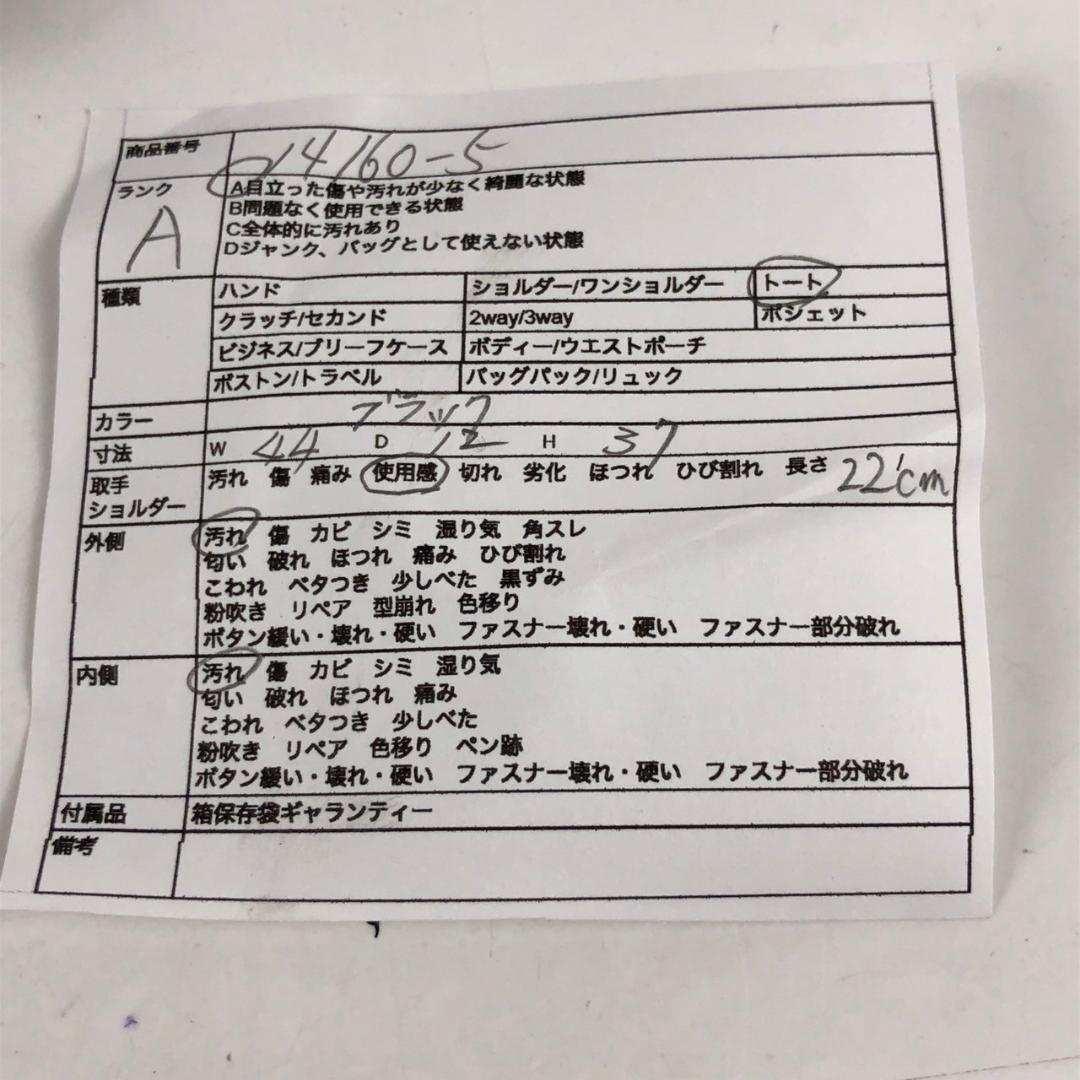 商品番号 14160-5
ランク A
A目立った傷や汚れが少なく綺麗な状態
B問題なく使用できる状態
C全体的に汚れあり
Dジャンク、バッグとして使えない状態
種類 ハンド ショルダー/ワンショルダー トート
クラッチ/セカンド 2way/3way ポシェット
ビジネス/ブリーフケース ボディー/ウエストポーチ
ボストン/トラベル バッグパック/リュック
カラー ブラック
寸法 W 44 D 12 H 37
取手 汚れ 傷 痛み 使用感 切れ 劣化 ほつれ ひび割れ 長さ 22cm
ショルダー
外側 汚れ 傷 カビ シミ 湿り気 角スレ
匂い 破れ ほつれ 痛み ひび割れ
こわれ ベタつき 少しべた 黒ずみ
粉吹き リペア 型崩れ 色移り
ボタン緩い・壊れ・硬い ファスナー壊れ・硬い ファスナー部分破れ
内側 汚れ 傷 カビ シミ 湿り気
匂い 破れ ほつれ 痛み
こわれ ベタつき 少しべた
粉吹き リペア 色移り ペン跡
ボタン緩い・壊れ・硬い ファスナー壊れ・硬い ファスナー部分破れ
付属品 箱保存袋ギャランティー
備考